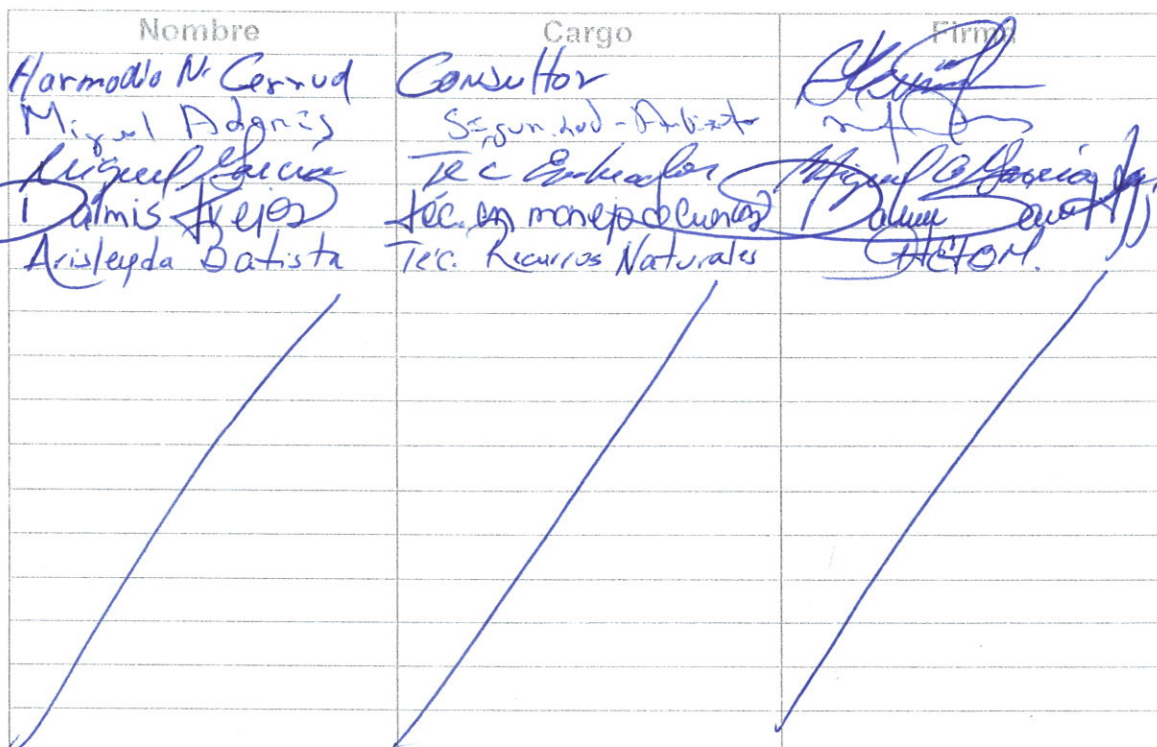 Nombre Cargo Firma
Harmodio N. Cerrud Consultor
Miguel Adames Seguridad - Ambiente
Miguel García Tec Evaluador Miguel García
Dalmis Trejos Téc. en manejo de cuencas
Arisleyda Batista Téc. Recursos Naturales